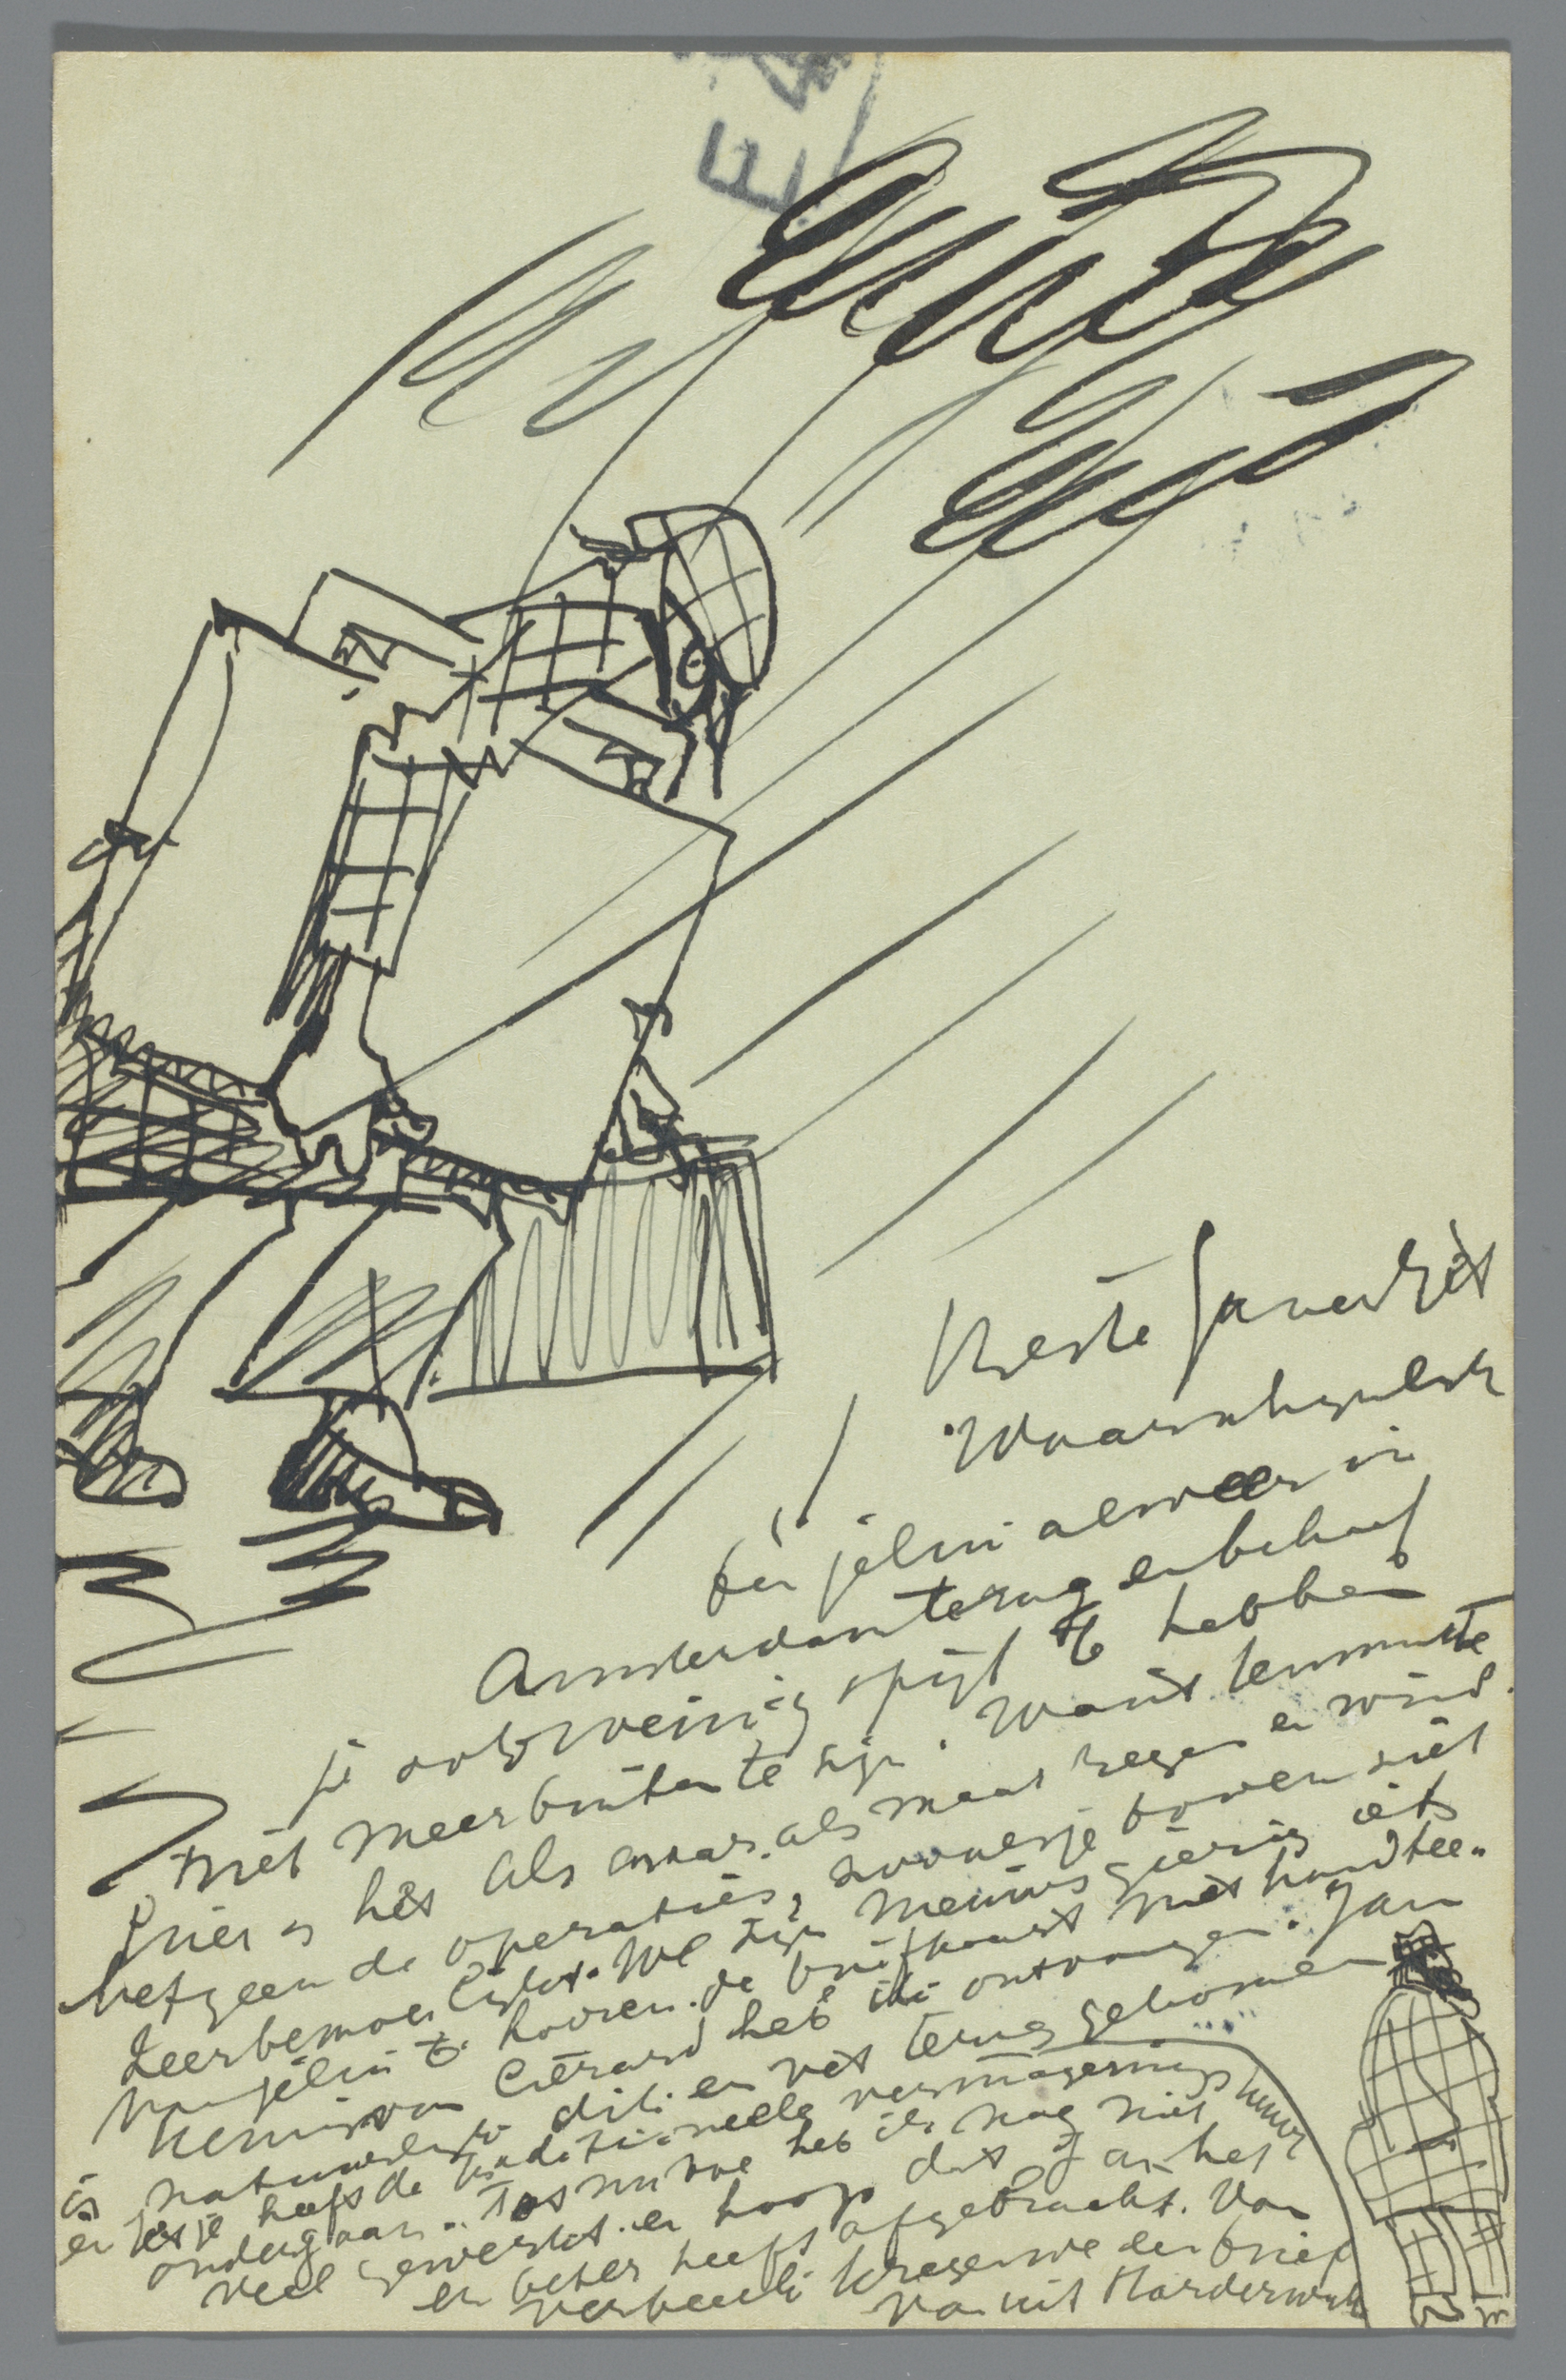 Beste Jan en Riet
Waarschynlyk
ben jelui alweer in
Amsterdam terug en behoef
je ook weinig spijt te hebben
niet meer buiten te zijn. Want tenminste
hier is het als maar als maar regen en wind.
hetgeen de operaties, zoowelsje boven niet
zeer bemoeilykt. We zijn nieuwsgierig iets
van jelui te hooren. de briefkaart met handtee-
kening van Gérard heb ik ontvangen. Jan
is natuurlyk dik en vet terug gekomen
en Jetje heeft de traditioneele vermagerings kuur
ondergaan. Tot nu toe heb ik nog niet
veel gewerkt en hoop dat Jan het
er beter heeft afgebracht. Van
Verbeek kregen we een brief
van uit Harderwyk